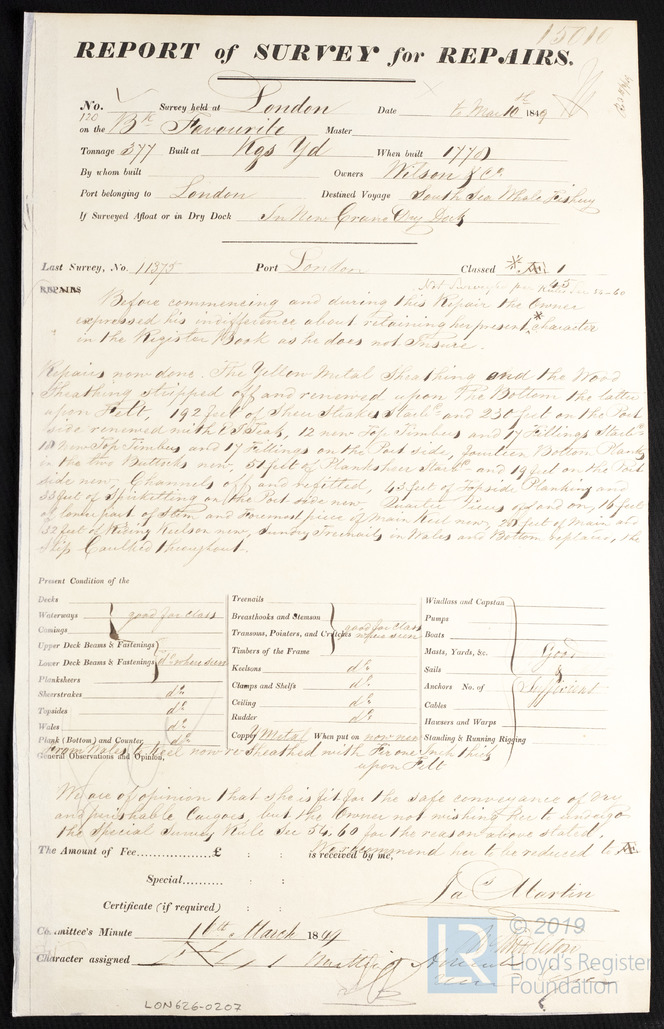 15010
REPORT of SURVEY for REPAIRS.
No. 120 Survey held at London Date to Mar 10th 1849
on the Bk Favourite Master
Tonnage 377 Built at Kgs Yd When built
By whom built Owners Wilson & Co
Port belonging to London Destined Voyage South Sea Whale Fishery
If Surveyed Afloat or in Dry Dock In New Crane Dry Dock
Last Survey, No. 11375 Port London Classed * Æ 1
REPAIRS
Before commencing and during this Repair the Owner
expressed his indifference about retaining her present * character
in the Register Book as he does not Insure.
Repairs now done. The Yellow Metal Sheathing and the Wood
Sheathing stripped off and renewed upon The Bottom the latter
upon Felt, 192 feet of Sheer Strakes Starbd and 230 feet on the Port
side renewed with 12 new Top Timbers and 17 Fillings Starbd
10 new Top Timbers and 17 Fillings on the Port side, fourteen Bottom Planks
in the two Buttocks new, 51 feet of Planksheer Starbd and 19 feet on the Port
side new, Channels off and refitted, 43 feet of Topside Planking and
33 feet of Spirketting on the Port side new. Quarter Pieces off and on, 16 feet
of lower part of Stem and Foremost piece of Main Keel new, 20 feet of Main and
32 feet of Rising Keelson new, Sundry Treenails in Wales and Bottom replaced, the
Ship Caulked throughout.
Present Condition of the
Decks
Waterways good for class
Comings
Upper Deck Beams & Fastenings
Lower Deck Beams & Fastenings do where seen
Planksheers
Sheerstrakes do
Topsides do
Wales do
Plank (Bottom) and Counter do
Treenails
Breasthooks and Stemson good for class
Transoms, Pointers, and Crutches where seen
Timbers of the Frame
Keelsons do
Clamps and Shelfs do
Ceiling do
Rudder do
Copper Metal When put on now new
Windlass and Capstan
Pumps
Boats
Masts, Yards, &c. Good
Sails &
Anchors No. of Sufficient
Cables
Hawsers and Warps
Standing & Running Rigging
From Wales to Keel now re Sheathed with Fir one Inch thick
General Observations and Opinion, upon Felt
We are of opinion that she is fit for the safe conveyance of dry
and perishable Cargoes, but the Owner not wishing her to undergo
the Special Survey Rule Sec 54.60 for the reason above stated,
We recommend her to be reduced to Æ
The Amount of Fee............... £ : : is received by me,
Special............ : :
Certificate (if required) : :
Jas Martin
Committee's Minute 16th March 1849
Character assigned
LON626-0207
LR
© 2019
Lloyd's Register
Foundation